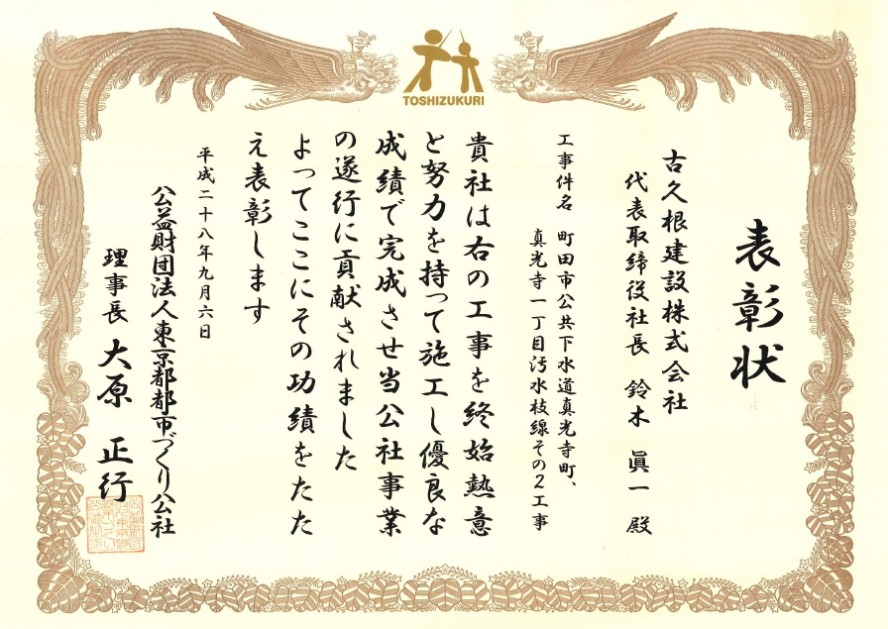 TOSHIZUKURI
表彰状
古久根建設株式会社
代表取締役社長 鈴木 眞一 殿
工事件名 町田市公共下水道真光寺町、
真光寺一丁目汚水枝線その2工事
貴社は右の工事を終始熱意
と努力を持って施工し優良な
成績で完成させ当公社事業
の遂行に貢献されました
よってここにその功績をたた
え表彰します
平成二十八年九月六日
公益財団法人東京都都市づくり公社
理事長 大原 正行